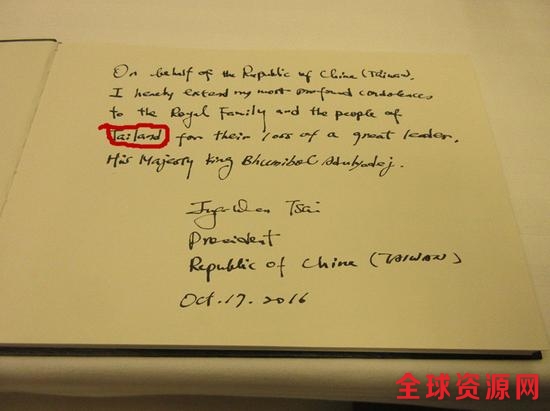 On behalf of the Republic of China (Taiwan,
I hereby extend my most profound condolences
to the Royal Family and the people of
Tailand for their loss of a great leader,
His Majesty King Bhumibol Adulyadej.
Ing-wen Tsai
President
Republic of China (TAIWAN)
Oct. 17. 2016
全球资源网